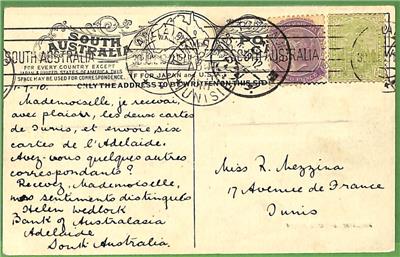 SOUTH
AUSTRALIA
SOUTH AUSTRALIA
SOUTH AUSTRALIA
FOR EVERY COUNTRY EXCEPT
JAPAN & UNITED STATES OF AMERICA THIS
SPACE MAY BE USED FOR CORRESPONDENCE.
FOR JAPAN and U.S.
ONLY THE ADDRESS TO BE WRITTEN ON THIS SIDE
7-10
Mademoiselle, je recevai,
avec plaisir, les deux cartes
de Tunis, et envoire six
cartes de l'Adelaide.
Avez vous quelques autres
correspondants?
Recevez, Mademoiselle,
mes sentiments distingués
Helen Wedlock
Bank of Australasia
Adelaide
South Australia.
Miss R. Mezzina
17 Avenue de France
Tunis